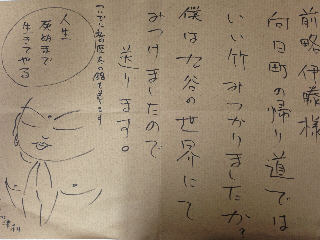 前略伊藤様
向日町の帰り道では
いい竹みつかりましたか?
僕は九谷の世界にて
みつけましたので
送ります。
人生
死ぬまで
生きてやる